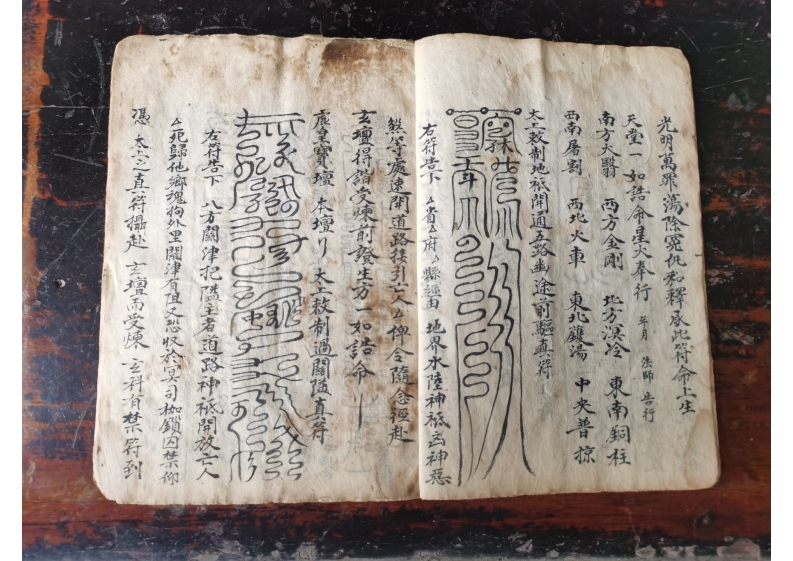 光明萬罪蕩除冤仇和釋承此符命上生
天堂一如誥命星火奉行 年 月 法師 告行
南方大翳 西方金剛 北方溟冷 東南銅柱
西南屠割 西北火車 東北鑊湯 中央普掠
太上敕制地祇開通五路幽途前驅真符
右符告下 厶省厶府厶縣經由 地界水陸神祇 神惡
煞等處速開道路接引亡人厶俾令隨念徑赴
玄壇得諧受煉前發生方一如誥命
虛皇寶壇 本壇 太上敕制過關 真符
右符告下 八方關津把隘主者道路神祇開放亡人
厶死歸他鄉魂拘外里關津有阻又恐收於冥司枷鎖囚禁仰
憑 太上之真符攝赴 玄壇而受煉 玄科有禁符到